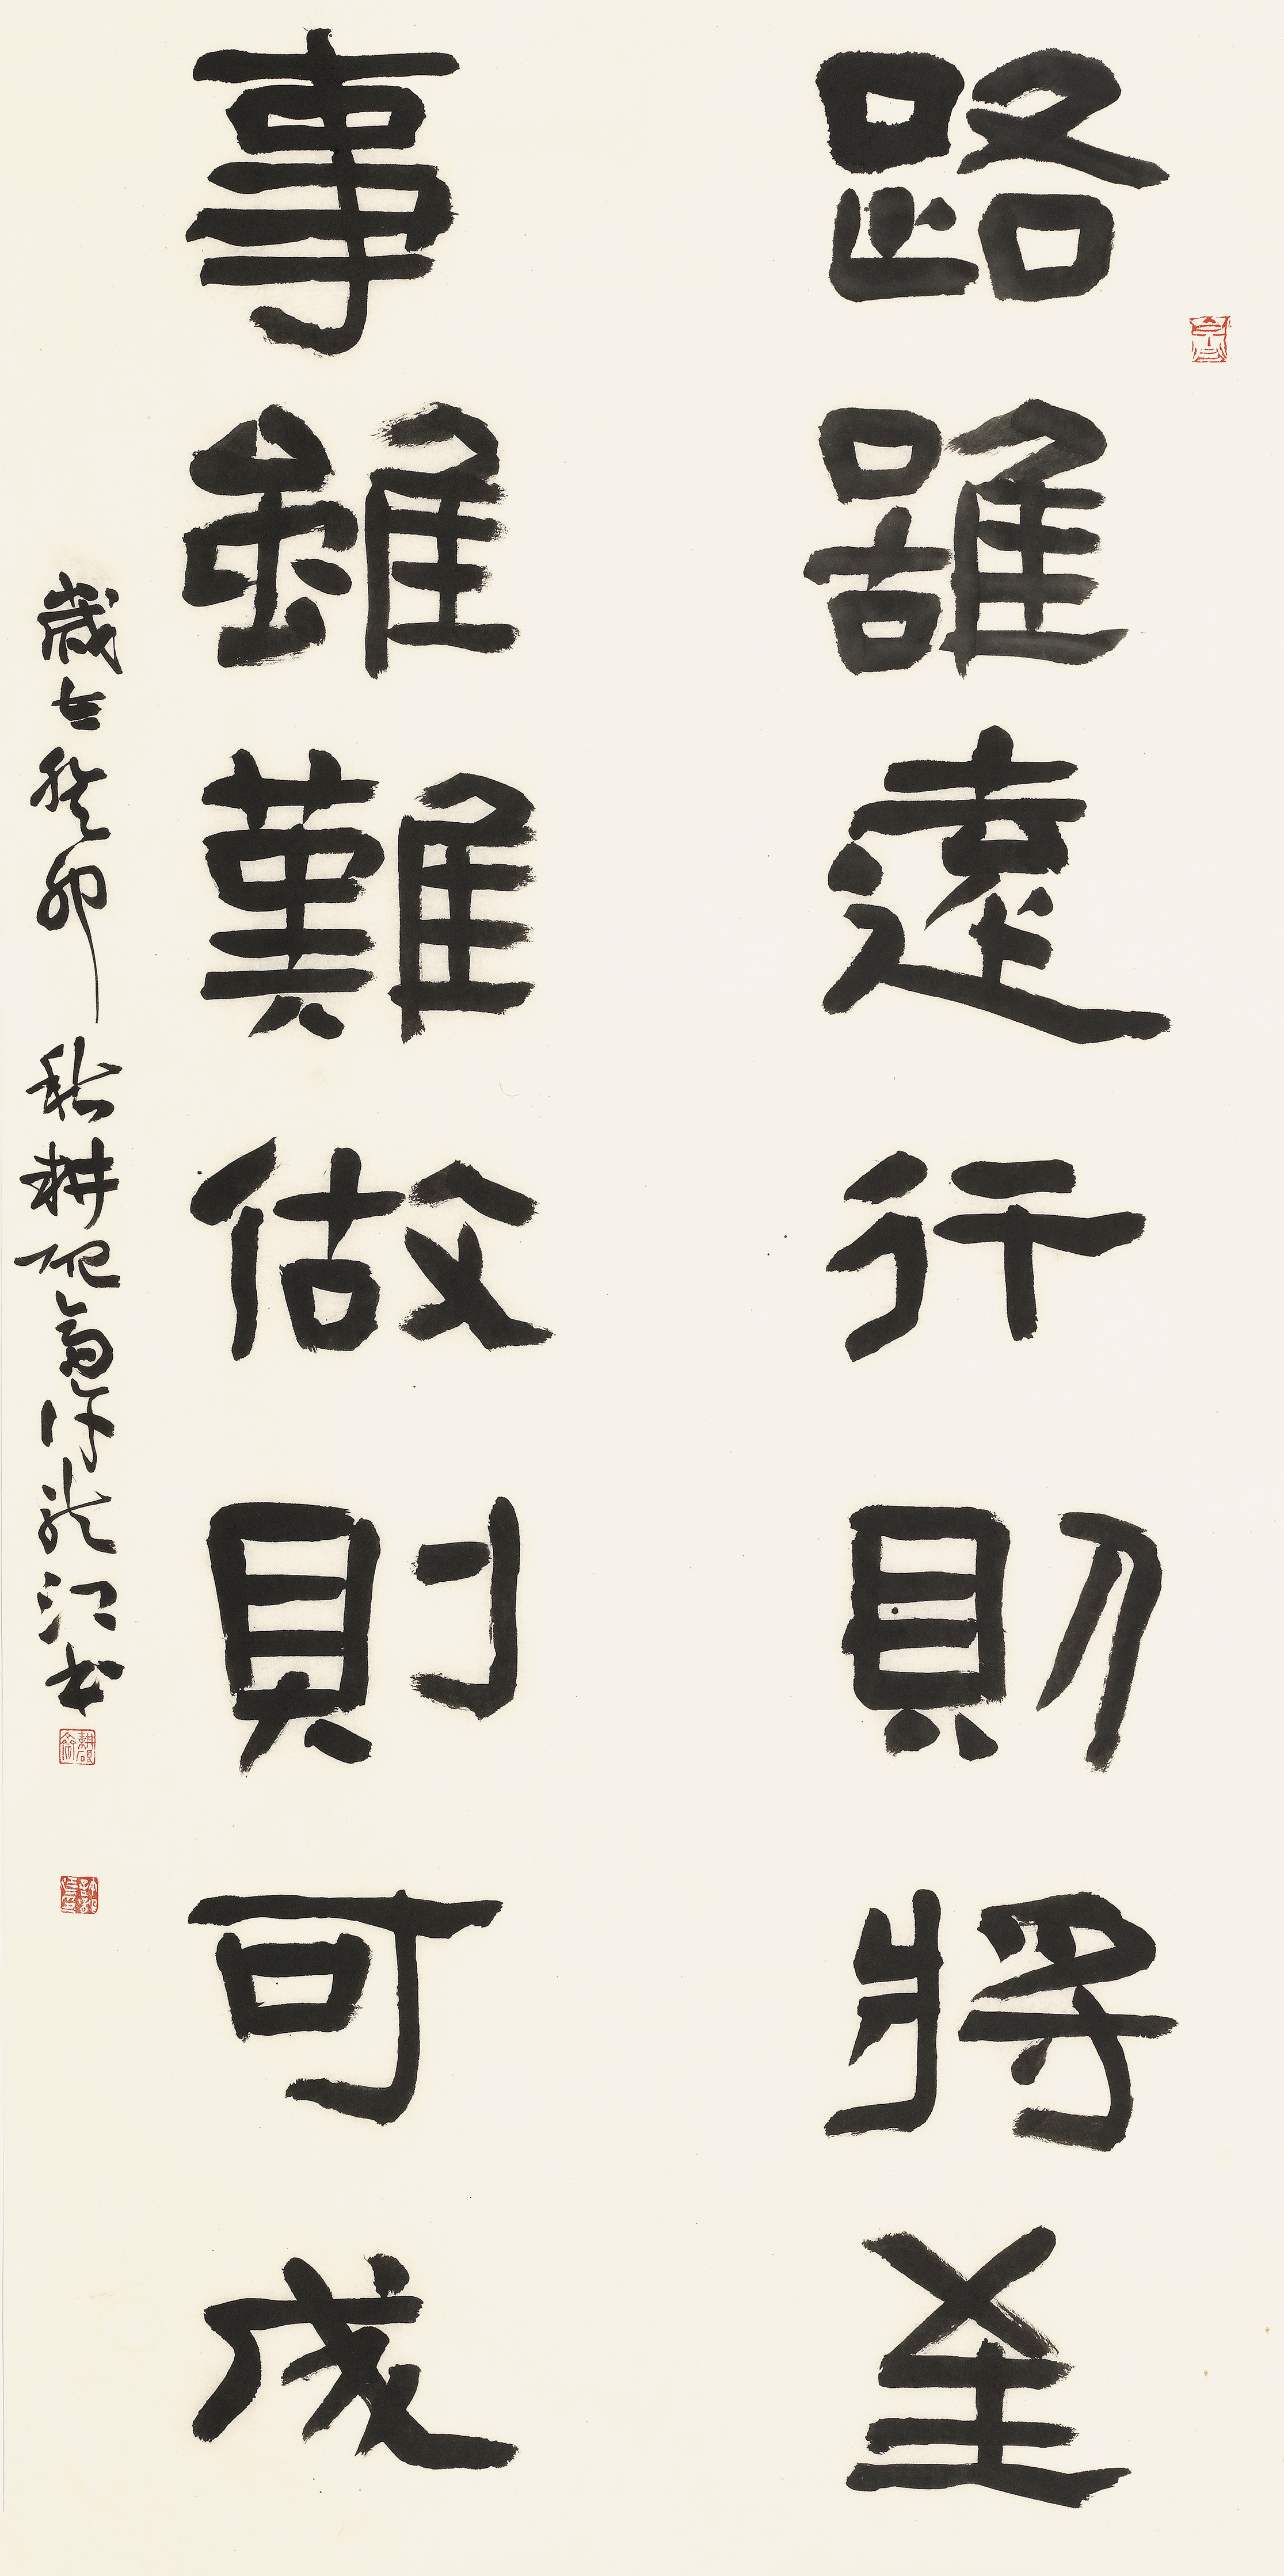 路雖遠行則將至
事雖難做則可成
歲在癸卯秋耕硯齋許龍江書